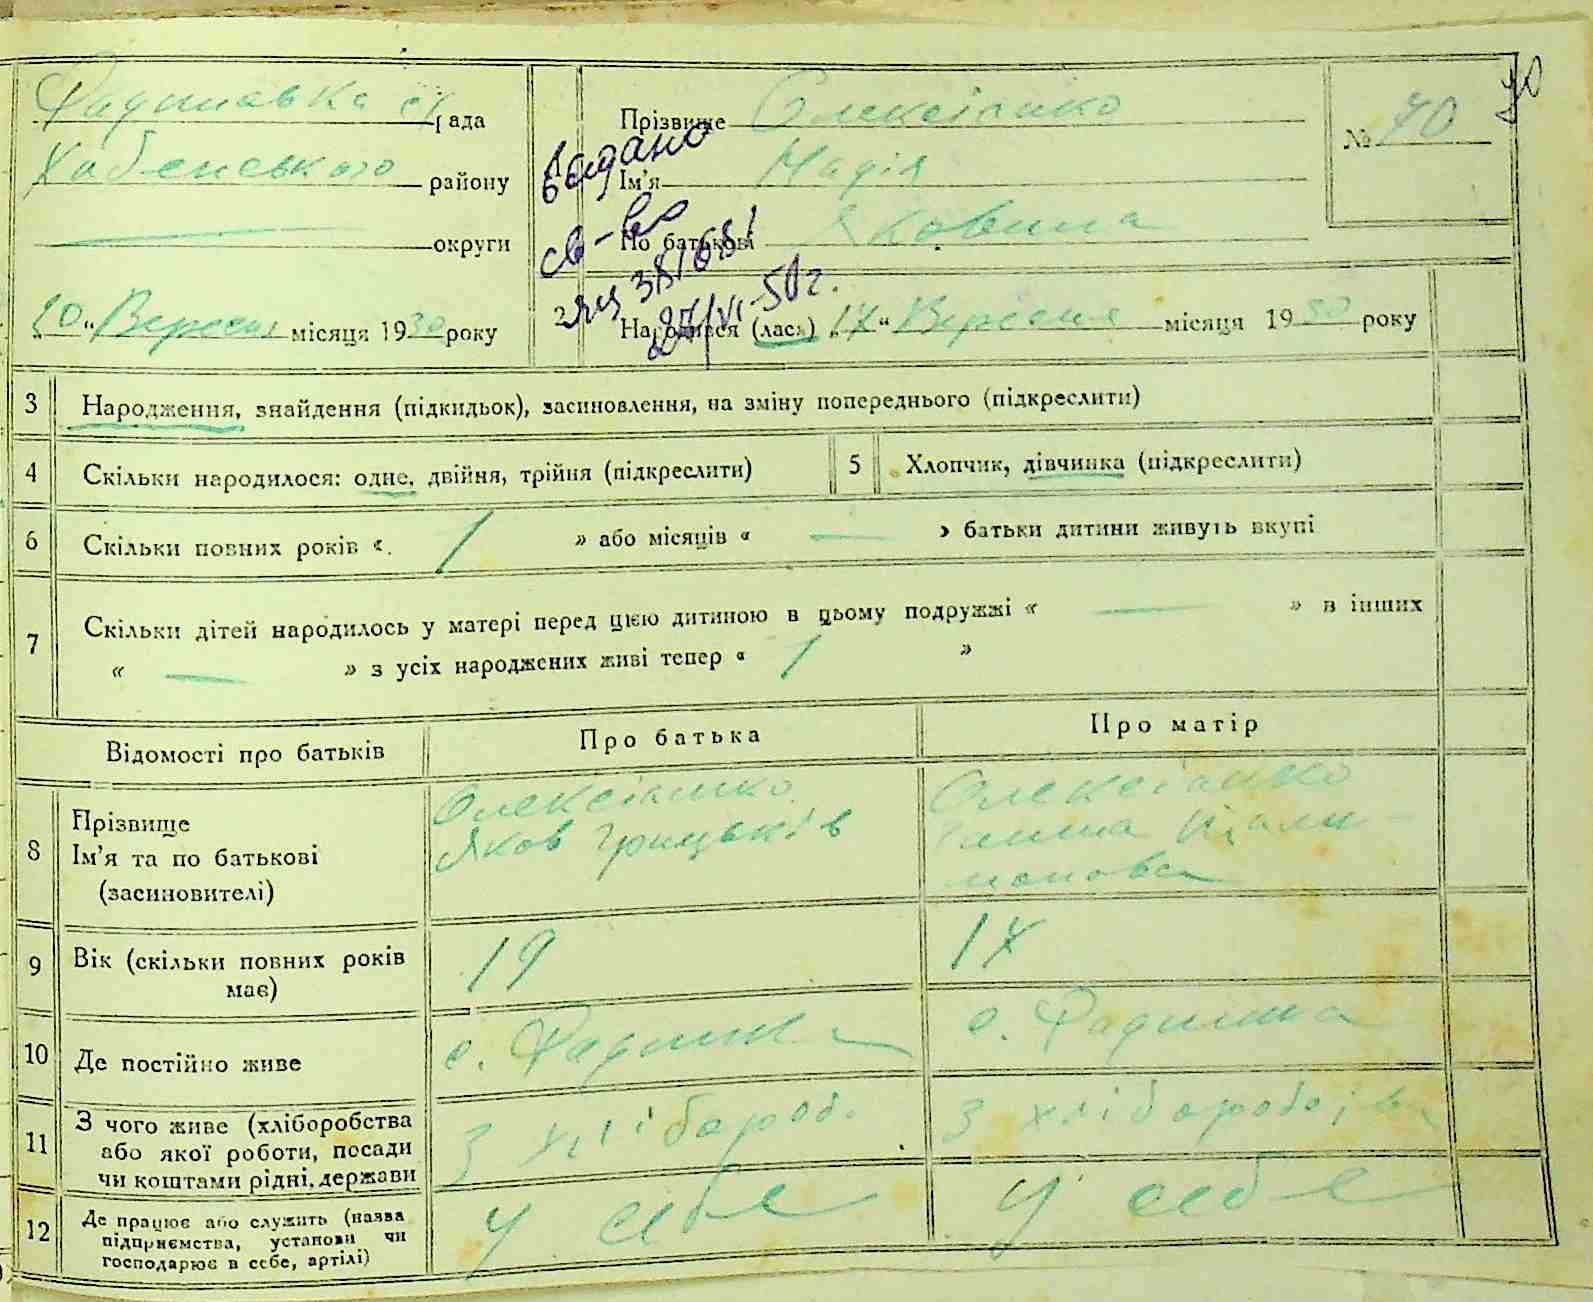 рада
Хабенського району
округи
Видано
св-во
Прізвище Олексієнко
Ім'я Надія
По батькові Яковина
№ 70
70
20 „ Вересня місяця 1930 року
2 Народився (лась) „17“ Вересня місяця 1930 року
3 Народження, знайдення (підкидьок), засиновлення, на зміну попереднього (підкреслити)
4 Скільки народилося: одне, двійня, трійня (підкреслити) 5 Хлопчик, дівчинка (підкреслити)
6 Скільки повних років «. 1 » або місяців « — » батьки дитини живуть вкупі
7 Скільки дітей народилось у матері перед цією дитиною в цьому подружжі « — » в інших
« — » з усіх народжених живі тепер « 1 »
Відомості про батьків Про батька Про матір
8 Прізвище
Ім'я та по батькові
(засиновителі)
Олексієнко
Яков Грицьків
Олексієнко
Ганна
9 Вік (скільки повних років
має)
19 17
10 Де постійно живе с. с.
11 З чого живе (хліборобства
або якої роботи, посади
чи коштами рідні, держави
З хлібороб. З
12 Де працює або служить (назва
підприємства, установи чи
господарює в себе, артілі)
У себе У себе